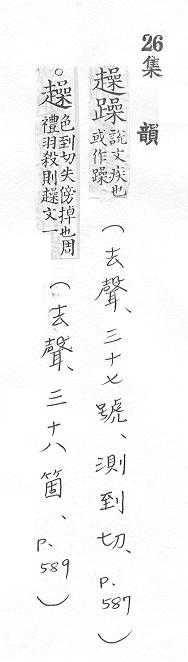 26集 韻
趮躁說文疾也
或作躁
(去聲、三十七號、測到切、p.587)
○趮色到切失傍掉也周
禮羽殺則趮文一
(去聲、三十八箇、p.589)